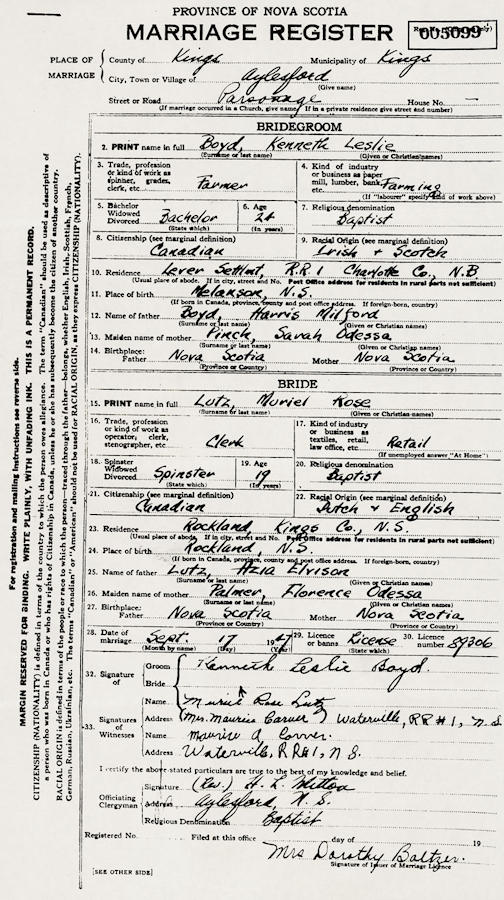 PROVINCE OF NOVA SCOTIA
MARRIAGE REGISTER
005099
PLACE OF MARRIAGE
County of Kings Municipality of Kings
City, Town or Village of Aylesford
(Give name)
Street or Road Parsonage House No. —
(If marriage occurred in a Church, give name) If in a private residence give street and number)
BRIDEGROOM
2. PRINT name in full Boyd, Kenneth Leslie
(Surname or last name) (Given or Christian names)
3. Trade, profession or kind of work as spinner, grades, clerk, etc. Farmer
4. Kind of industry or business as paper mill, lumber, bank, etc. Farming
(If "labourer" specify kind of work above)
5. Bachelor Widowed Divorced Bachelor
(State which)
6. Age 24
(In years)
7. Religious denomination Baptist
8. Citizenship (see marginal definition) Canadian
9. Racial Origin (see marginal definition) Irish + Scotch
10. Residence Lever Settlmt, R.R 1 Charlotte Co., N.B
(Usual place of abode. If in city, street and No. Post Office address for residents in rural parts not sufficient)
11. Place of birth Melanson, N.S.
(If born in Canada, province, county and post office address. If foreign-born, country)
12. Name of father Boyd, Harris Milford
(Surname or last name) (Given or Christian names)
13. Maiden name of mother Pinch, Sarah Odessa
(Surname or last name) (Given or Christian names)
14. Birthplace: Father Nova Scotia Mother Nova Scotia
(Province or Country) (Province or Country)
BRIDE
15. PRINT name in full Lutz, Muriel Rose
(Surname or last name) (Given or Christian names)
16. Trade, profession or kind of work as operator; clerk, stenographer, etc. Clerk
17. Kind of industry or business as textiles, retail, law office, etc. Retail
(If unemployed answer "At Home")
18. Spinster Widowed Divorced Spinster
(State which)
19. Age 19
(In years)
20. Religious denomination Baptist
21. Citizenship (see marginal definition) Canadian
22. Racial Origin (see marginal definition) Dutch + English
23. Residence Rockland, Kings Co., N.S.
(Usual place of abode. If in city, street and No. Post Office address for residents in rural parts not sufficient)
24. Place of birth Rockland, N.S.
(If born in Canada, province, county and post office address. If foreign-born, country)
25. Name of father Lutz, Azia Elvison
(Surname or last name) (Given or Christian names)
26. Maiden name of mother Palmer, Florence Odessa
(Surname or last name) (Given or Christian names)
27. Birthplace: Father Nova Scotia Mother Nova Scotia
(Province or Country) (Province or Country)
28. Date of marriage Sept. 17 1947
(Month by name) (Day) (Year)
29. Licence or banns License
(State which)
30. Licence number 89306
32. Signature of
Groom Kenneth Leslie Boyd.
Bride
Muriel Rose Lutz
33. Signatures of Witnesses
Name
Address (Mrs. Maurice Carver) Waterville, RR #1, N.S
Name Maurice A. Carver.
Address Waterville, RR#1, N.S.
I certify the above-stated particulars are true to the best of my knowledge and belief.
Officiating Clergyman
Signature (Rev.) H. L. Mitton
Address Aylesford, N.S.
Religious Denomination Baptist
Registered No. Filed at this office day of 19
Mrs Dorothy Baltzer.
Signature of Issuer of Marriage Licence
[SEE OTHER SIDE]
For registration and mailing instructions see reverse side.
MARGIN RESERVED FOR BINDING. WRITE PLAINLY, WITH UNFADING INK. THIS IS A PERMANENT RECORD.
CITIZENSHIP (NATIONALITY) is defined in terms of the country to which the person owes allegiance. The term "Canadian" should be used as descriptive of
a person who was born in Canada or who has rights of Citizenship in Canada, unless he or she has subsequently become the citizen of another country.
RACIAL ORIGIN is defined in terms of the people or race to which the person—traced through the father—belongs, whether English, Irish, Scottish, French,
German, Russian, Ukrainian, etc. The terms "Canadian" or "American" should not be used for RACIAL ORIGIN, as they express CITIZENSHIP (NATIONALITY).